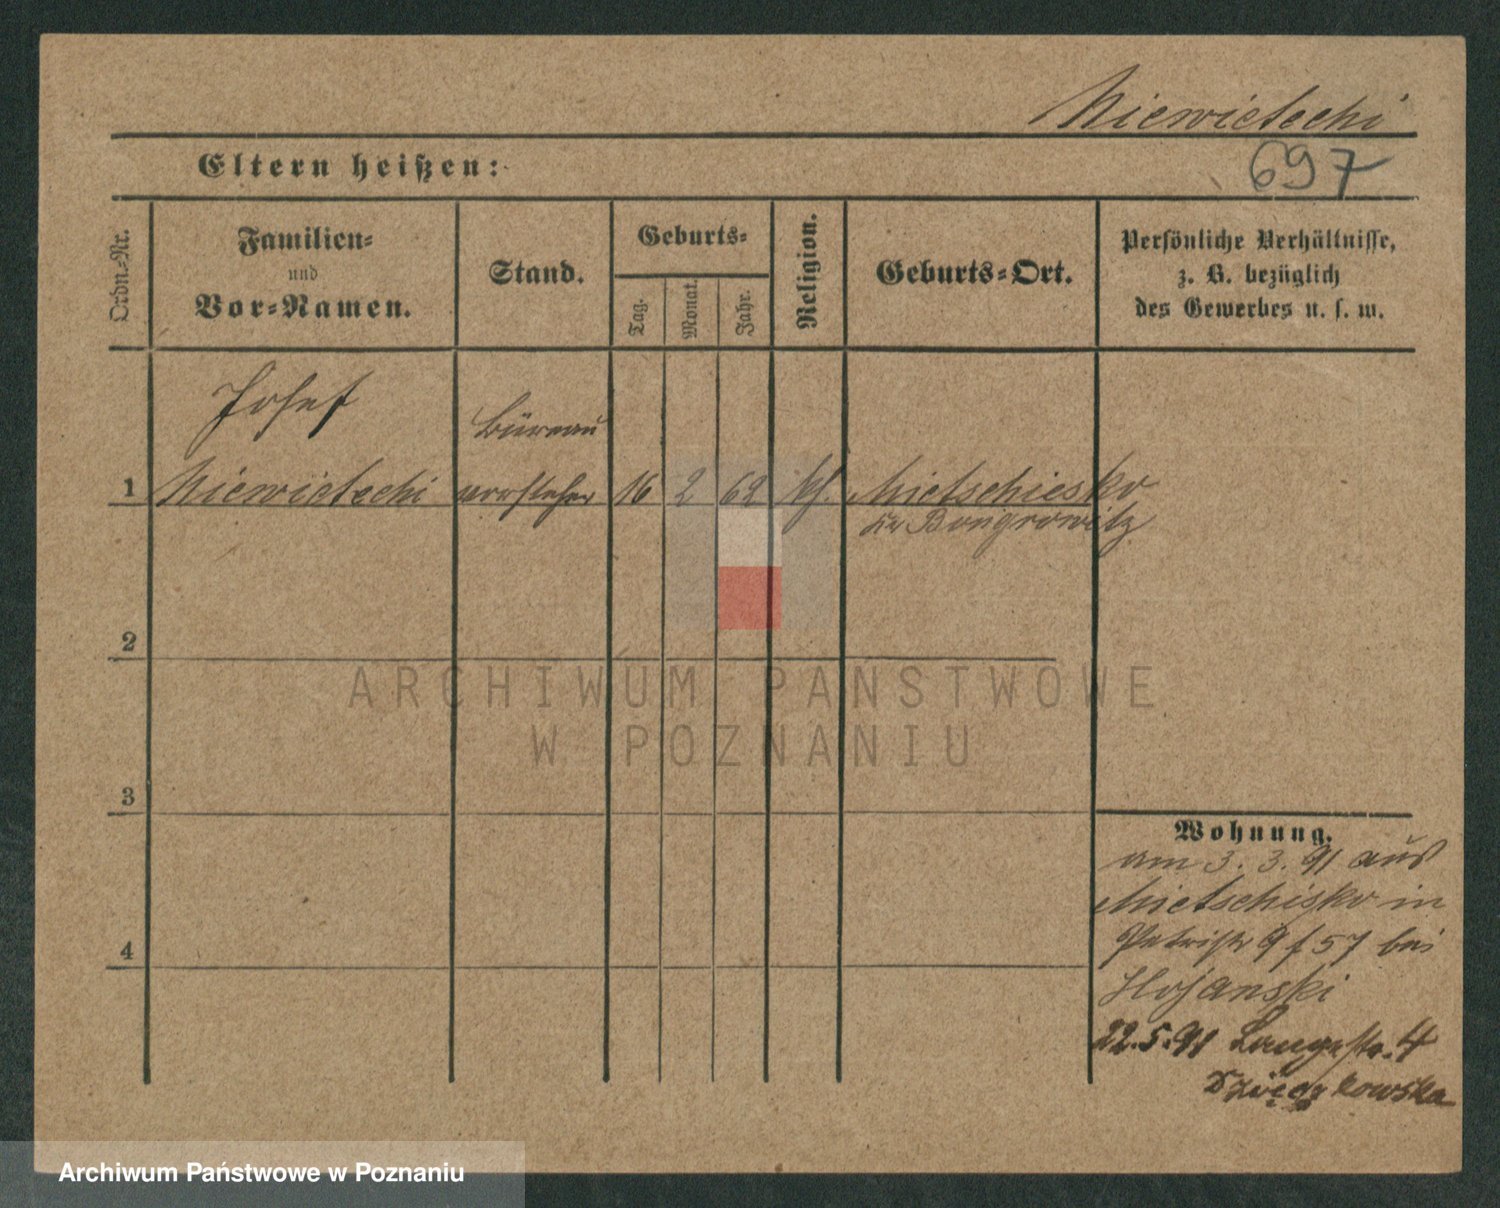 Niewietecki
697
Eltern heißen:
Ordn.-Nr.
Familien-
und
Vor-Namen.
Stand.
Geburts-
Tag.
Monat.
Jahr.
Religion.
Geburts-Ort.
Persönliche Verhältnisse,
z. B. bezüglich
des Gewerbes u. s. w.
Josef
Büreau
1 Niewietecki vorsteher 16 2 62 kf. Mietschiesko
Kr Bongrowitz
2
3
4
Wohnung.
am 3. 3. 91 aus
Mietschisko in
Petristr 9 f 57 bei
Hojanski
22.5.91 Langestr. 4
ARCHIWUM PAŃSTWOWE
W POZNANIU
Archiwum Państwowe w Poznaniu